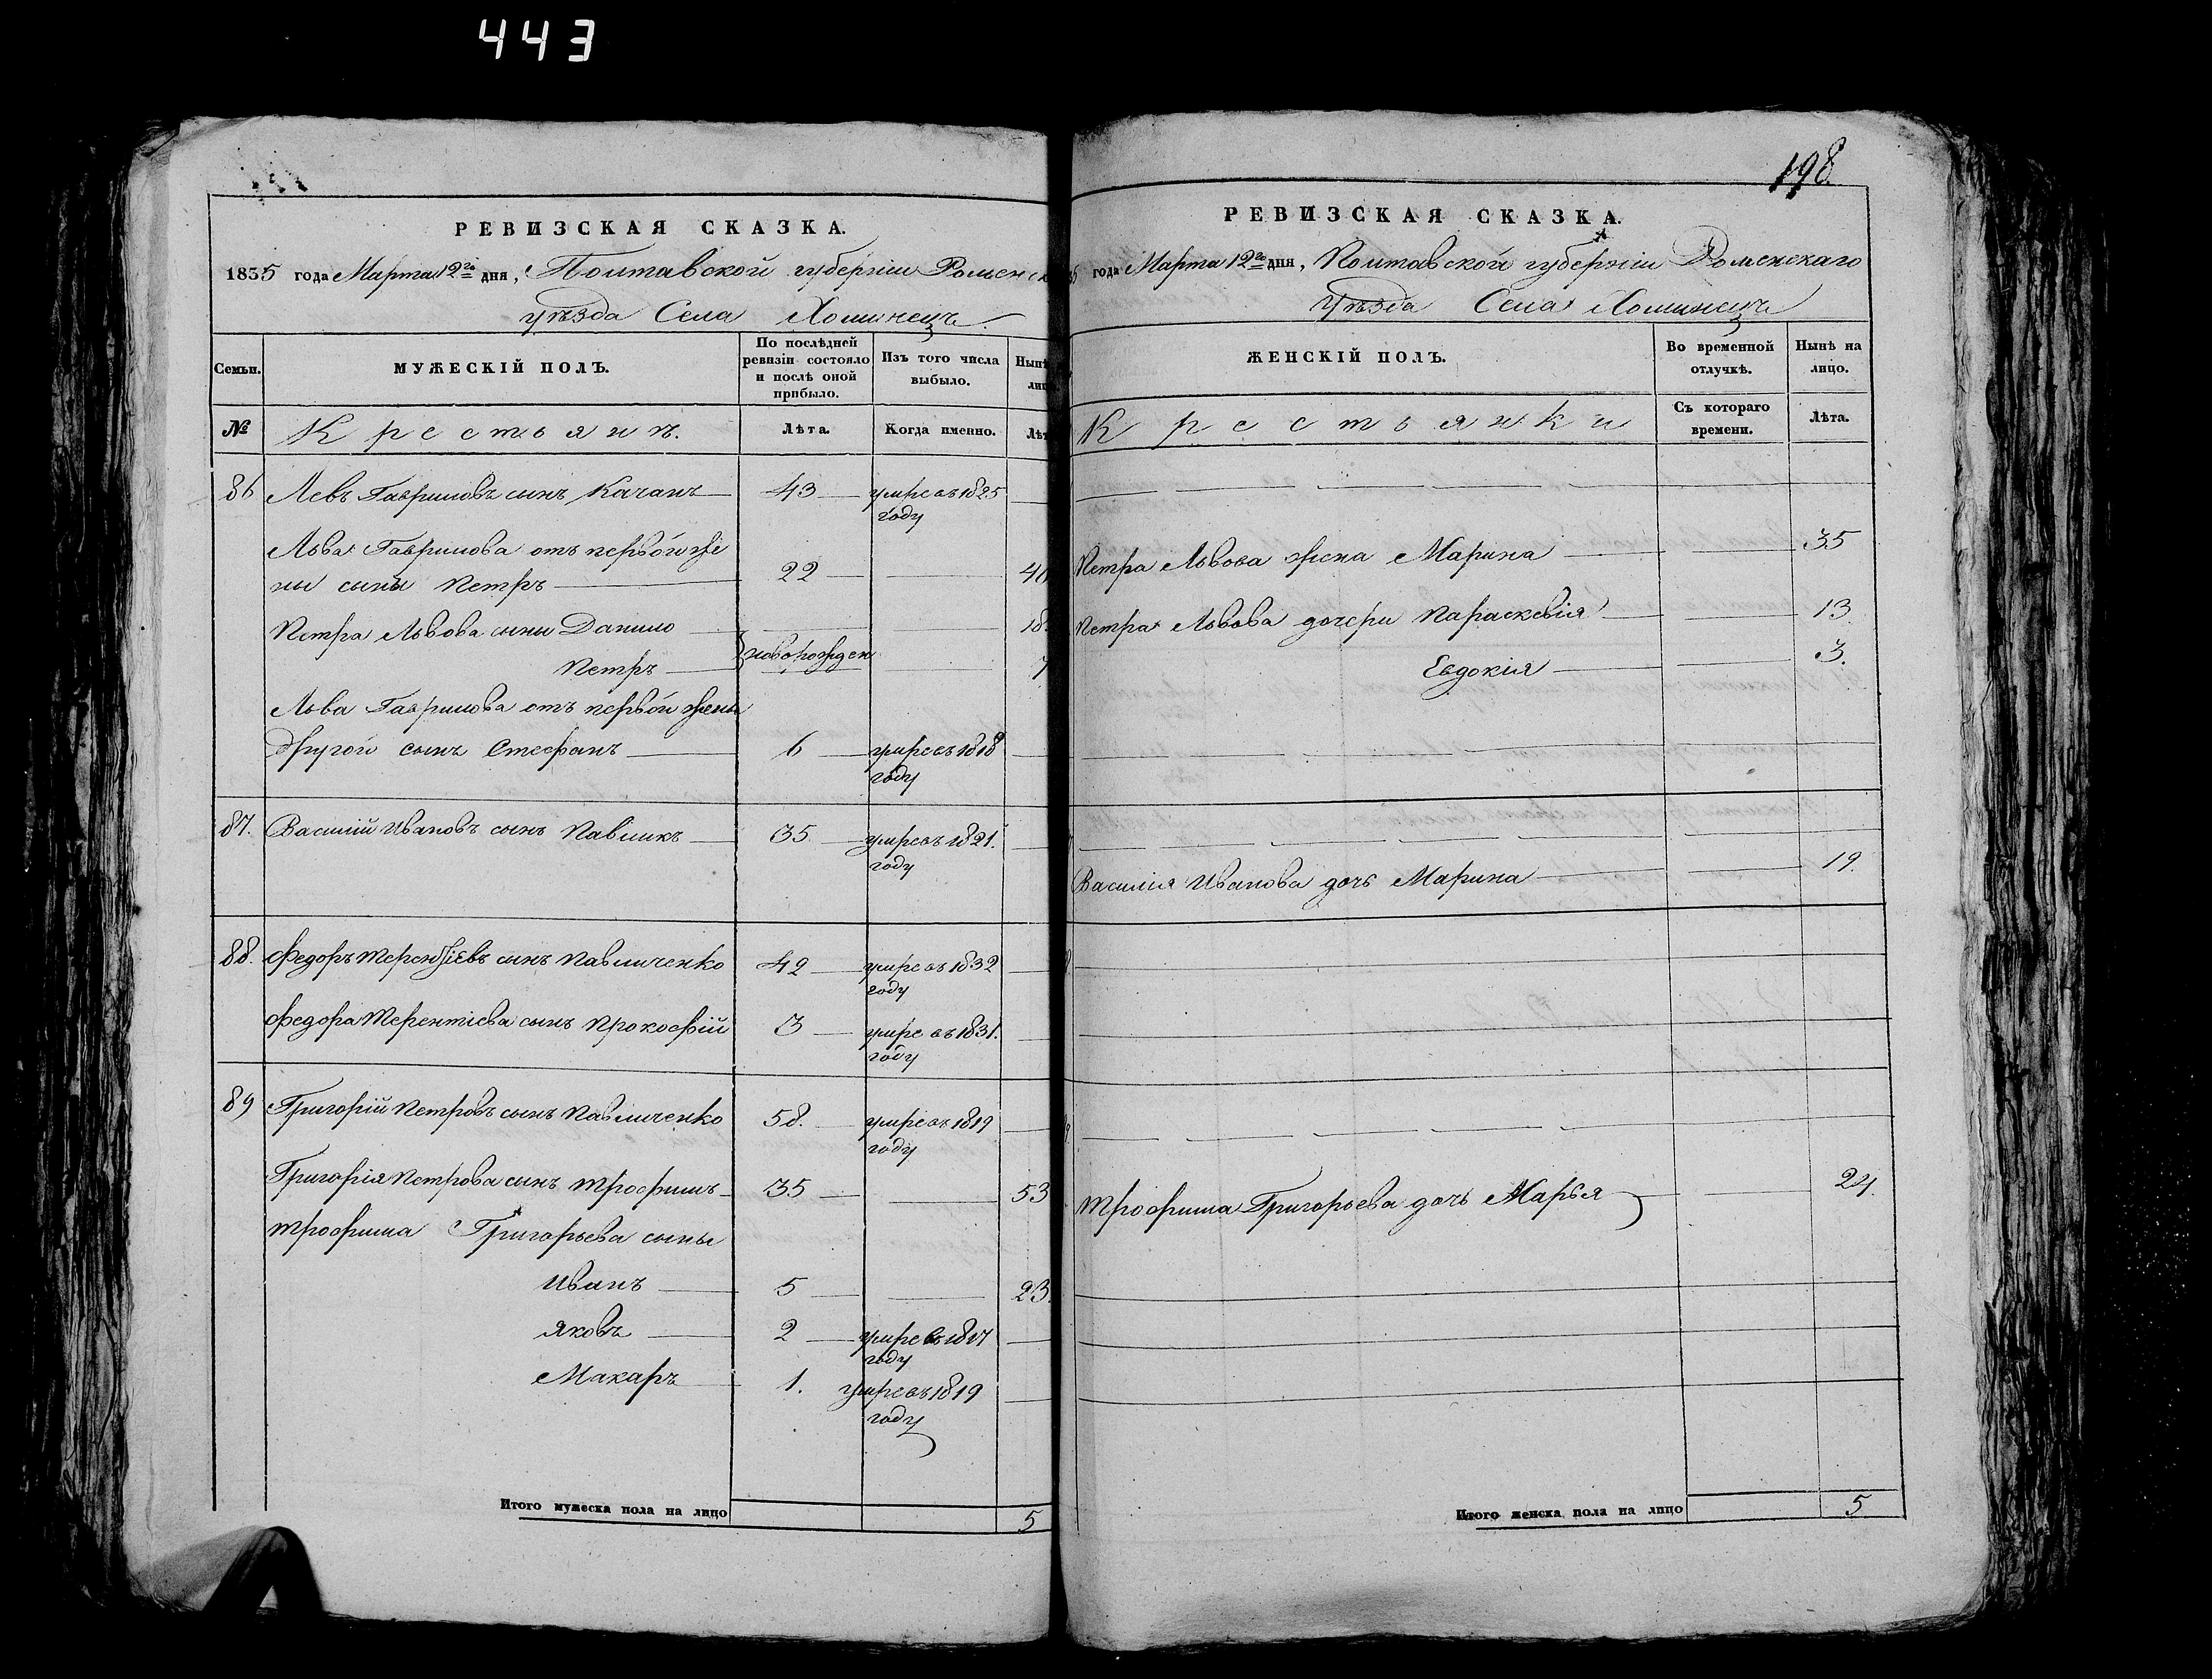 443
198.
РЕВИЗСКАЯ СКАЗКА.
1835 года Марта 12го дня, Полтавской губерніи Роменск
уѣзда Села Хоминецъ.
Семьи.
МУЖЕСКІЙ ПОЛЪ.
По послѣдней ревизіи состояло и послѣ оной прибыло.
Изъ того числа выбыло.
Нынѣ лиц
№
Крестьянъ.
Лѣта.
Когда именно.
Лѣт
86 Левъ Гавриловъ сынъ Качанъ 43 умре въ 1825
году
Льва Гаврилова отъ первой же
ны сынъ Петръ 22
Петра Львова сыны Данило 18
Петръ новорожден 7
Льва Гаврилова отъ первой жены
другой сынъ Стефанъ 6 умре въ 1818
году
87. Василій Ивановъ сынъ Павликъ 35 умре въ 1821.
году
88. Федоръ Терентіевъ сынъ Павличенко 42 умре въ 1832
году
Федора Терентіева сынъ Прокофій 3 умре въ 1831.
году
89 Григорій Петровъ сынъ Павличенко 58. умре въ 1819
году
Григорія Петрова сынъ Трофимъ 35 53
Трофима Григорьева сыны
Иванъ 5 23.
Яковъ 2 умре въ 1817
году
Макаръ 1. умре въ 1819
году
Итого мужеска пола на лицо 5
РЕВИЗСКАЯ СКАЗКА.
35 года Марта 12го дня, Полтавской губерніи Роменскаго
Уѣзда Села Хоминецъ
ЖЕНСКІЙ ПОЛЪ.
Во временной отлучкѣ.
Нынѣ на лицо.
Крестьянки
Съ котораго времени.
Лѣта.
Петра Львова жена Марина 35
Петра Львова дочери Параскевія 13.
Евдокія 3.
Василія Иванова дочь Марина 19.
Трофима Григорьева дочь Марья 24.
Итого женска пола на лицо 5